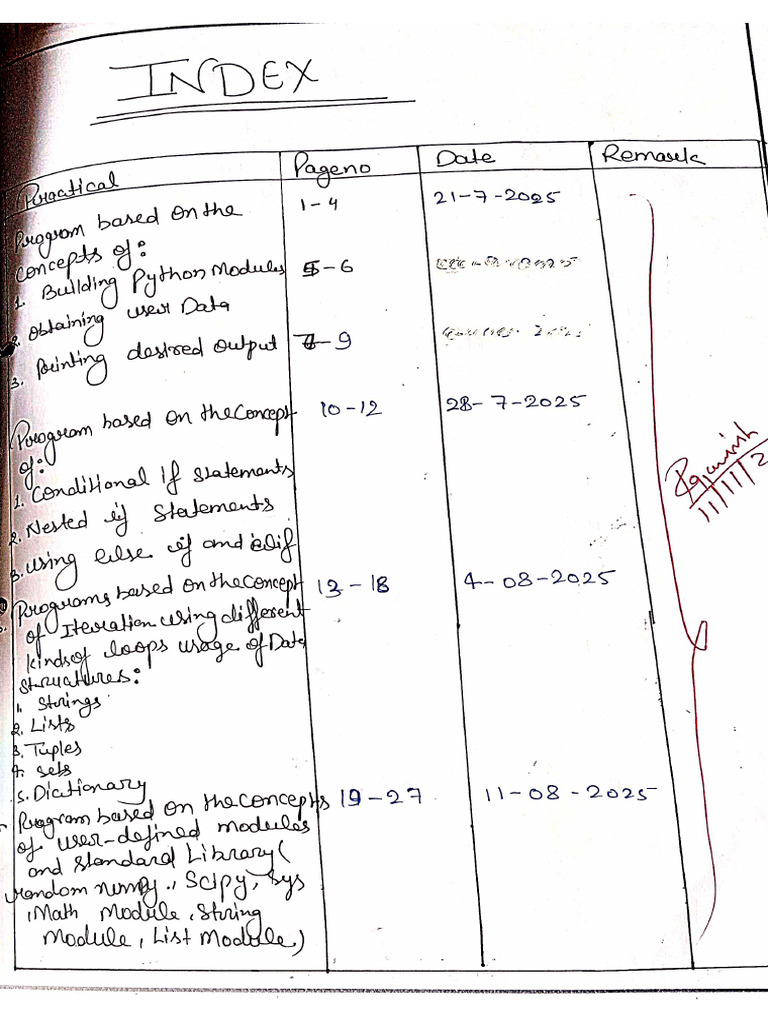 INDEX
Practical Pageno Date Remark
Program based on the 1-4 21-7-2025
concepts of:
1. Building Python Modules 5-6
2. Obtaining user Data
3. Printing desired output 7-9
Program based on the Concept 10-12 28-7-2025
of:
1. Conditional if statements
2. Nested if statements
3. using else if and elif
Programs based on the Concept 13-18 4-08-2025
of Iteration using different
kinds of loops usage of Data
structures:
1. Strings
2. Lists
3. Tuples
4. Sets
5. Dictionary
Program based on the Concepts 19-27 11-08-2025
of user-defined modules
and Standard Library (
random numpy, Scipy, Sys
, Math Module, String
Module, List Module,)
11/11/2